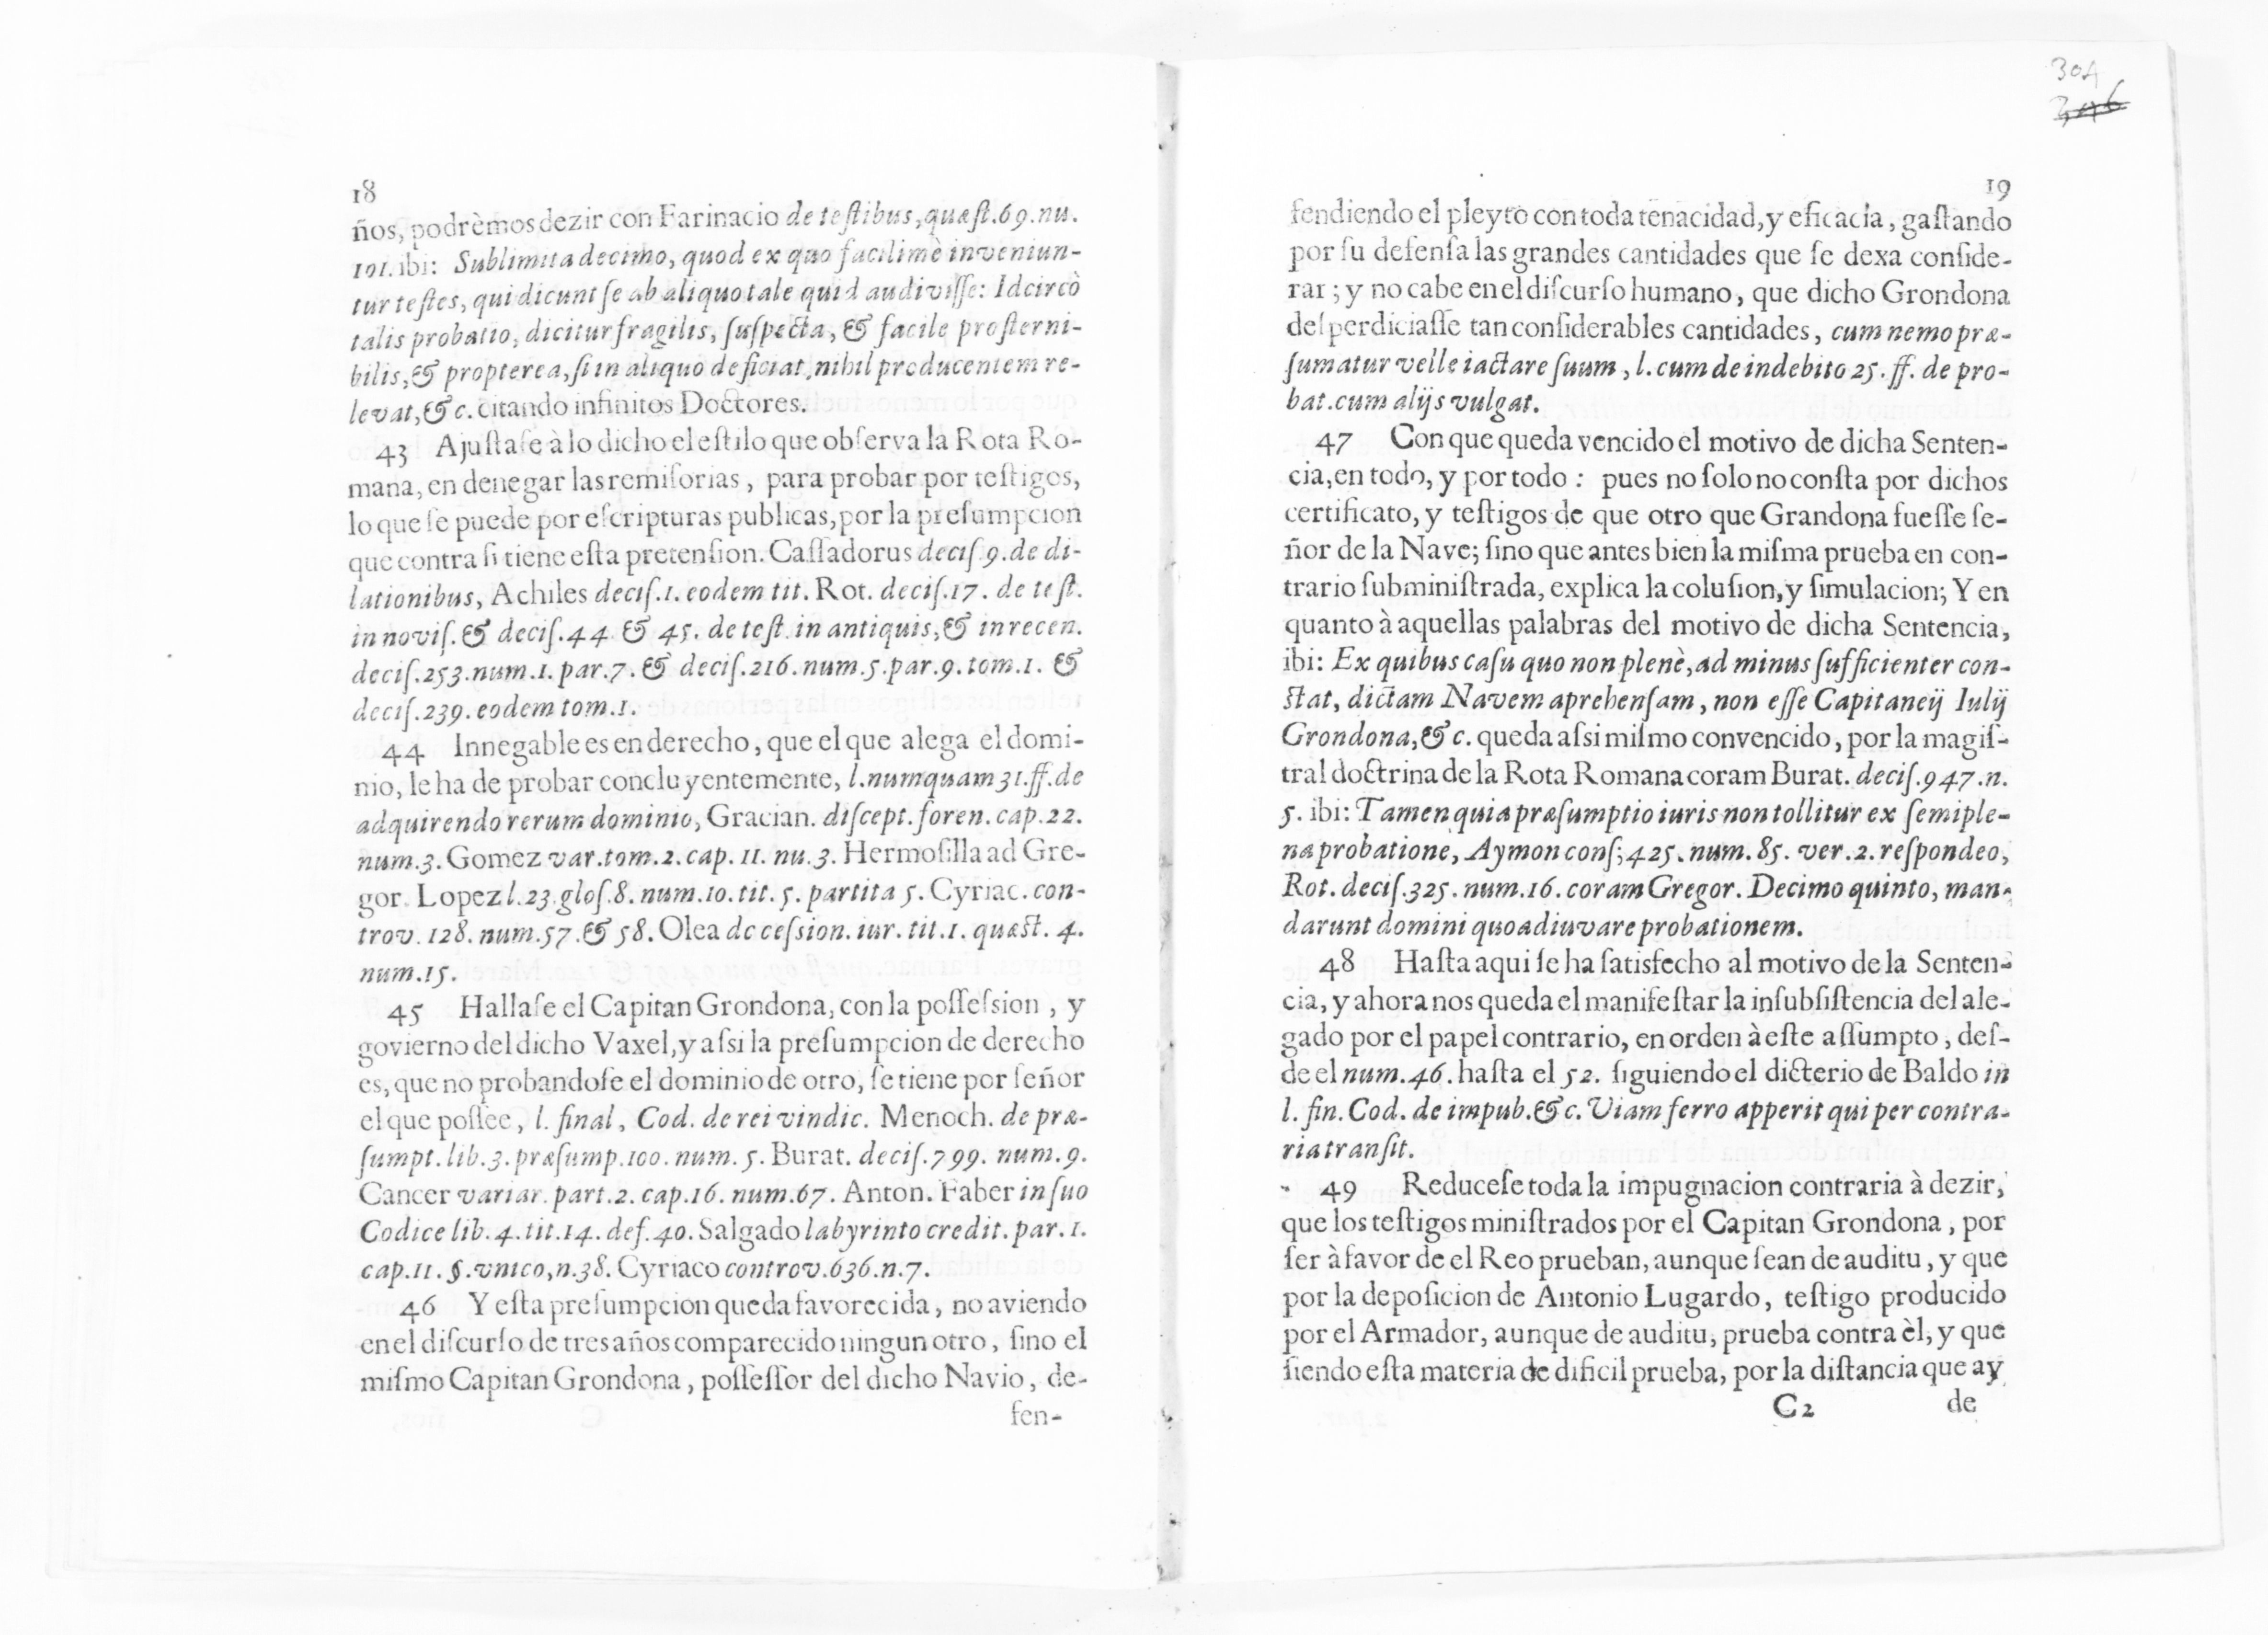 18
ños, podrèmos dezir con Farinacio de teſtibus, quæſt.69.nu.
101.ibi: Sublimita decimo, quod ex quo facilimè inveniun-
tur teſtes, qui dicunt ſe ab aliquo tale quid audiviſſe: Idcircò
talis probatio, dicitur fragilis, ſuſpecta, & facile proſterni-
bilis, & propterea, ſi in aliquo deficiat, nihil producentem re-
levat, & c. citando infinitos Doctores.
43 Ajuſtaſe à lo dicho el eſtilo que obſerva la Rota Ro-
mana, en denegar las remiſorias, para probar por teſtigos,
lo que ſe puede por eſcripturas publicas, por la preſumpcion
que contra ſi tiene eſta pretenſion. Caſſadorus deciſ.9.de di-
lationibus, Achiles deciſ.1. eodem tit. Rot. deciſ.17. de teſt.
in noviſ. & deciſ.44 & 45. de teſt. in antiquis, & in recen.
deciſ.253.num.1.par.7. & deciſ.216.num.5.par.9.tom.1. &
deciſ.239.eodem tom.1.
44 Innegable es en derecho, que el que alega el domi-
nio, le ha de probar concluyentemente, l.numquam 31.ff.de
adquirendo rerum dominio, Gracian. diſcept.foren.cap.22.
num.3. Gomez var.tom.2.cap.11.nu.3. Hermoſilla ad Gre-
gor. Lopez l.23.gloſ.8.num.10.tit.5.partita 5. Cyriac. con-
trov.128.num.57.& 58. Olea de ceſsion.iur.tit.1.quæst.4.
num.15.
45 Hallaſe el Capitan Grondona, con la poſſeſsion, y
govierno del dicho Vaxel, y aſsi la preſumpcion de derecho
es, que no probandoſe el dominio de otro, ſe tiene por ſeñor
el que poſſee, l. final, Cod. de rei vindic. Menoch. de præ-
ſumpt.lib.3.præſump.100.num.5. Burat. deciſ.799. num.9.
Cancer variar. part.2. cap.16. num.67. Anton. Faber in ſuo
Codice lib.4.tit.14.def.40. Salgado labyrinto credit.par.1.
cap.11.§.vnico,n.38. Cyriaco controv.636.n.7.
46 Y eſta preſumpcion queda favorecida, no aviendo
en el diſcurſo de tres años comparecido ningun otro, ſino el
miſmo Capitan Grondona, poſſeſſor del dicho Navio, de-
fen-
304
19
fendiendo el pleyto con toda tenacidad, y eficacia, gaſtando
por ſu defenſa las grandes cantidades que ſe dexa conſide-
rar; y no cabe en el diſcurſo humano, que dicho Grondona
deſperdiciaſſe tan conſiderables cantidades, cum nemo præ-
ſumatur velle iactare ſuum, l.cum de indebito 25.ff. de pro-
bat.cum alijs vulgat.
47 Con que queda vencido el motivo de dicha Senten-
cia, en todo, y por todo: pues no ſolo no conſta por dichos
certificato, y teſtigos de que otro que Grandona fueſſe ſe-
ñor de la Nave; ſino que antes bien la miſma prueba en con-
trario ſubminiſtrada, explica la coluſion, y ſimulacion; Y en
quanto à aquellas palabras del motivo de dicha Sentencia,
ibi: Ex quibus caſu quo non plenè, ad minus ſufficienter con-
stat, dictam Navem aprehenſam, non eſſe Capitaneij Iulij
Grondona, & c. queda aſsi miſmo convencido, por la magiſ-
tral doctrina de la Rota Romana coram Burat. deciſ.947.n.
5. ibi: Tamen quia præſumptio iuris non tollitur ex ſemiple-
na probatione, Aymon conſ; 425.num.85. ver.2.reſpondeo,
Rot. deciſ.325.num.16.coram Gregor. Decimo quinto, man-
darunt domini quo adiuvare probationem.
48 Haſta aqui ſe ha ſatisfecho al motivo de la Senten-
cia, y ahora nos queda el manifeſtar la inſubſiſtencia del ale-
gado por el papel contrario, en orden à eſte aſſumpto, deſ-
de el num.46. haſta el 52. ſiguiendo el dicterio de Baldo in
l. fin. Cod. de impub. & c. Viam ferro apperit qui per contra-
ria tranſit.
49 Reduceſe toda la impugnacion contraria à dezir,
que los teſtigos miniſtrados por el Capitan Grondona, por
ſer à favor de el Reo prueban, aunque ſean de auditu, y que
por la depoſicion de Antonio Lugardo, teſtigo producido
por el Armador, aunque de auditu, prueba contra èl, y que
ſiendo eſta materia de dificil prueba, por la diſtancia que ay
C2 de